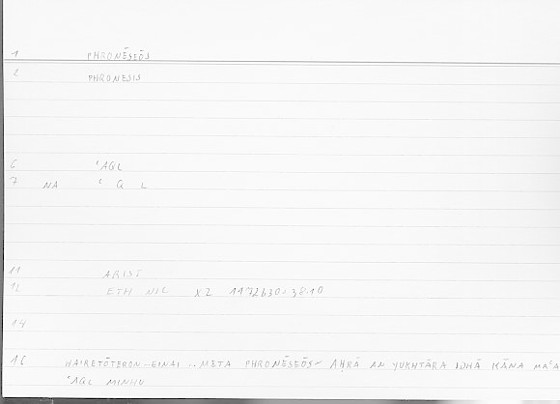 1 PHRONĒSEŌS
2 PHRONESIS
6 ʿAQL
7 NA ʿ Q L
11 ARIST
12 ETH NIC X2
14
16 HAIRETŌTERON EINAI .. META PHRONĒSEŌS AḤRĀ AN YUKHTĀRA IDHĀ KĀNA MAʿA
ʿAQL MINHU